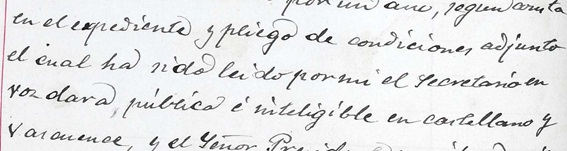 por un año, segun consta
en el expediente y pliego de condiciones adjunto
el cual ha sido leido por mi el Secretario en
voz clara, pública é inteligible en castellano y
vascuence, y el Señor